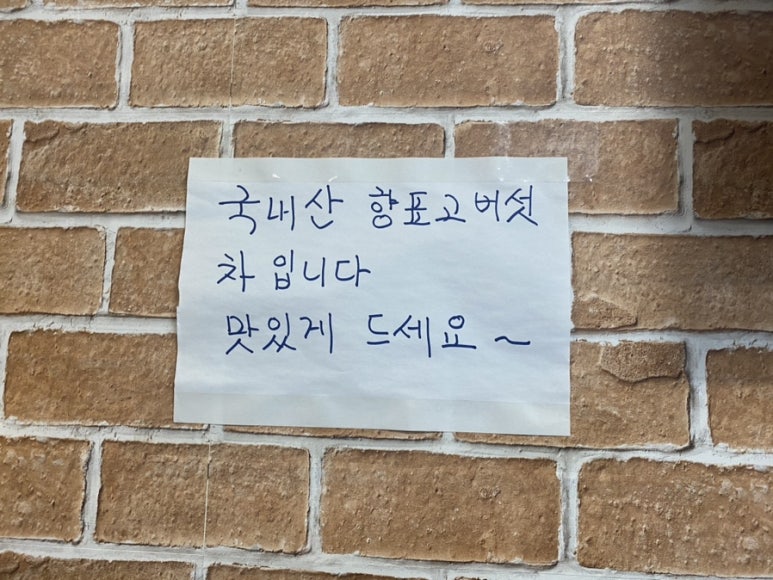 국내산 향표고버섯
차 입니다
맛있게 드세요~